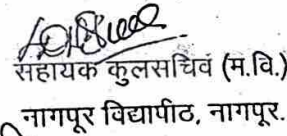 सहायक कुलसचिवं (म.वि.)
नागपूर विद्यापीठ, नागपूर.